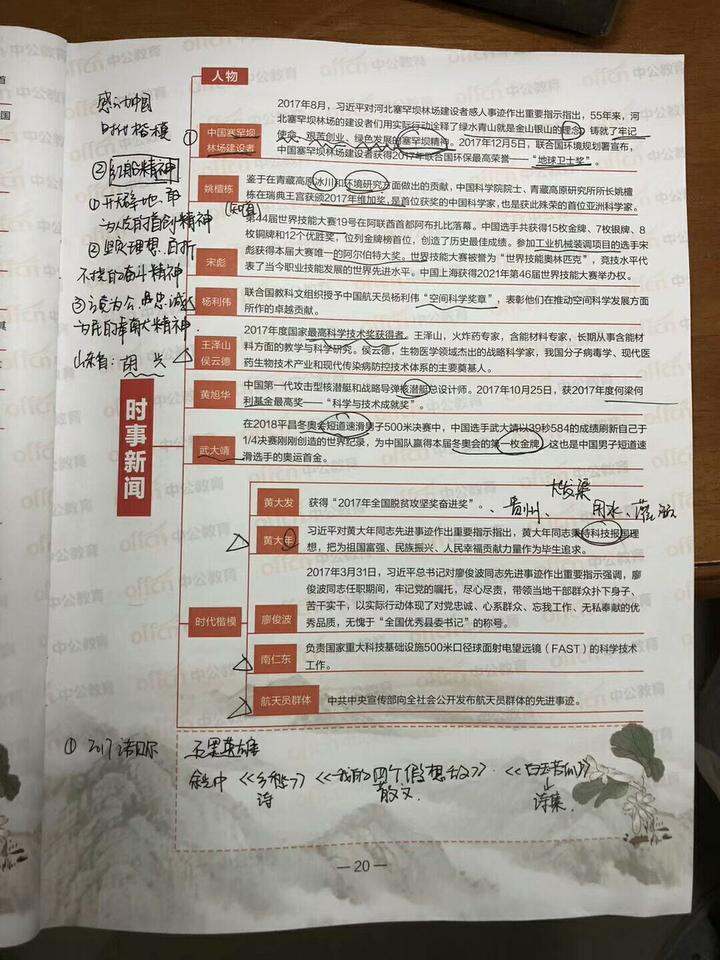 人物
感动中国
时代楷模
中国塞罕坝
林场建设者
2017年8月，习近平对河北塞罕坝林场建设者感人事迹作出重要指示指出，55年来，河
北塞罕坝林场的建设者们用实际行动诠释了绿水青山就是金山银山的理念，铸就了牢记
使命、艰苦创业、绿色发展的塞罕坝精神。2017年12月5日，联合国环境规划署宣布，
中国塞罕坝林场建设者获得2017年联合国环保最高荣誉——“地球卫士奖”。
②红船精神
①开天辟地、敢
为人先的首创精神
②坚定理想、百折
不挠的奋斗精神
③立党为公、忠诚
为民的奉献精神.
姚檀栋
鉴于在青藏高原冰川和环境研究方面做出的贡献，中国科学院院士、青藏高原研究所所长姚檀
栋在瑞典王宫获颁2017年维加奖，是首位获奖的中国科学家，也是获此殊荣的首位亚洲科学家。
宋彪
第44届世界技能大赛19号在阿联酋首都阿布扎比落幕。中国选手共获得15枚金牌、7枚银牌、8
枚铜牌和12个优胜奖，位列金牌榜首位，创造了历史最佳成绩。参加工业机械装调项目的选手宋
彪获得本届大赛唯一的阿尔伯特大奖。世界技能大赛被誉为“世界技能奥林匹克”，竞技水平代
表了当今职业技能发展的世界先进水平。中国上海获得2021年第46届世界技能大赛举办权。
杨利伟
联合国教科文组织授予中国航天员杨利伟“空间科学奖章”，表彰他们在推动空间科学发展方面
所作的卓越贡献。
王泽山
侯云德
2017年度国家最高科学技术奖获得者。王泽山，火炸药专家，含能材料专家，长期从事含能材
料方面的教学与科学研究。侯云德，生物医学领域杰出的战略科学家，我国分子病毒学、现代医
药生物技术产业和现代传染病防控技术体系的主要奠基人。
黄旭华
中国第一代攻击型核潜艇和战略导弹核潜艇总设计师。2017年10月25日，获2017年度何梁何
利基金最高奖——“科学与技术成就奖”。
时事新闻
武大靖
在2018平昌冬奥会短道速滑男子500米决赛中，中国选手武大靖以39秒584的成绩刷新自己于
1/4决赛刚刚创造的世界纪录，为中国队赢得本届冬奥会的第一枚金牌，这也是中国男子短道速
滑选手的奥运首金。
时代楷模
黄大发
获得“2017年全国脱贫攻坚奖奋进奖”。、贵州、用水、灌溉
大发渠
黄大年
习近平对黄大年同志先进事迹作出重要指示指出，黄大年同志秉持科技报国理
想，把为祖国富强、民族振兴、人民幸福贡献力量作为毕生追求。
廖俊波
2017年3月31日，习近平总书记对廖俊波同志先进事迹作出重要指示强调，廖
俊波同志任职期间，牢记党的嘱托，尽心尽责，带领当地干部群众扑下身子、
苦干实干，以实际行动体现了对党忠诚、心系群众、忘我工作、无私奉献的优
秀品质，无愧于“全国优秀县委书记”的称号。
南仁东
负责国家重大科技基础设施500米口径球面射电望远镜（FAST）的科学技术
工作。
航天员群体
中共中央宣传部向全社会公开发布航天员群体的先进事迹。
① 2017诺贝尔 石黑英雄
余光中 《乡愁》 《我的四个假想敌》、《白玉苦瓜》
诗 散文 诗集
— 20 —
offcn中公教育